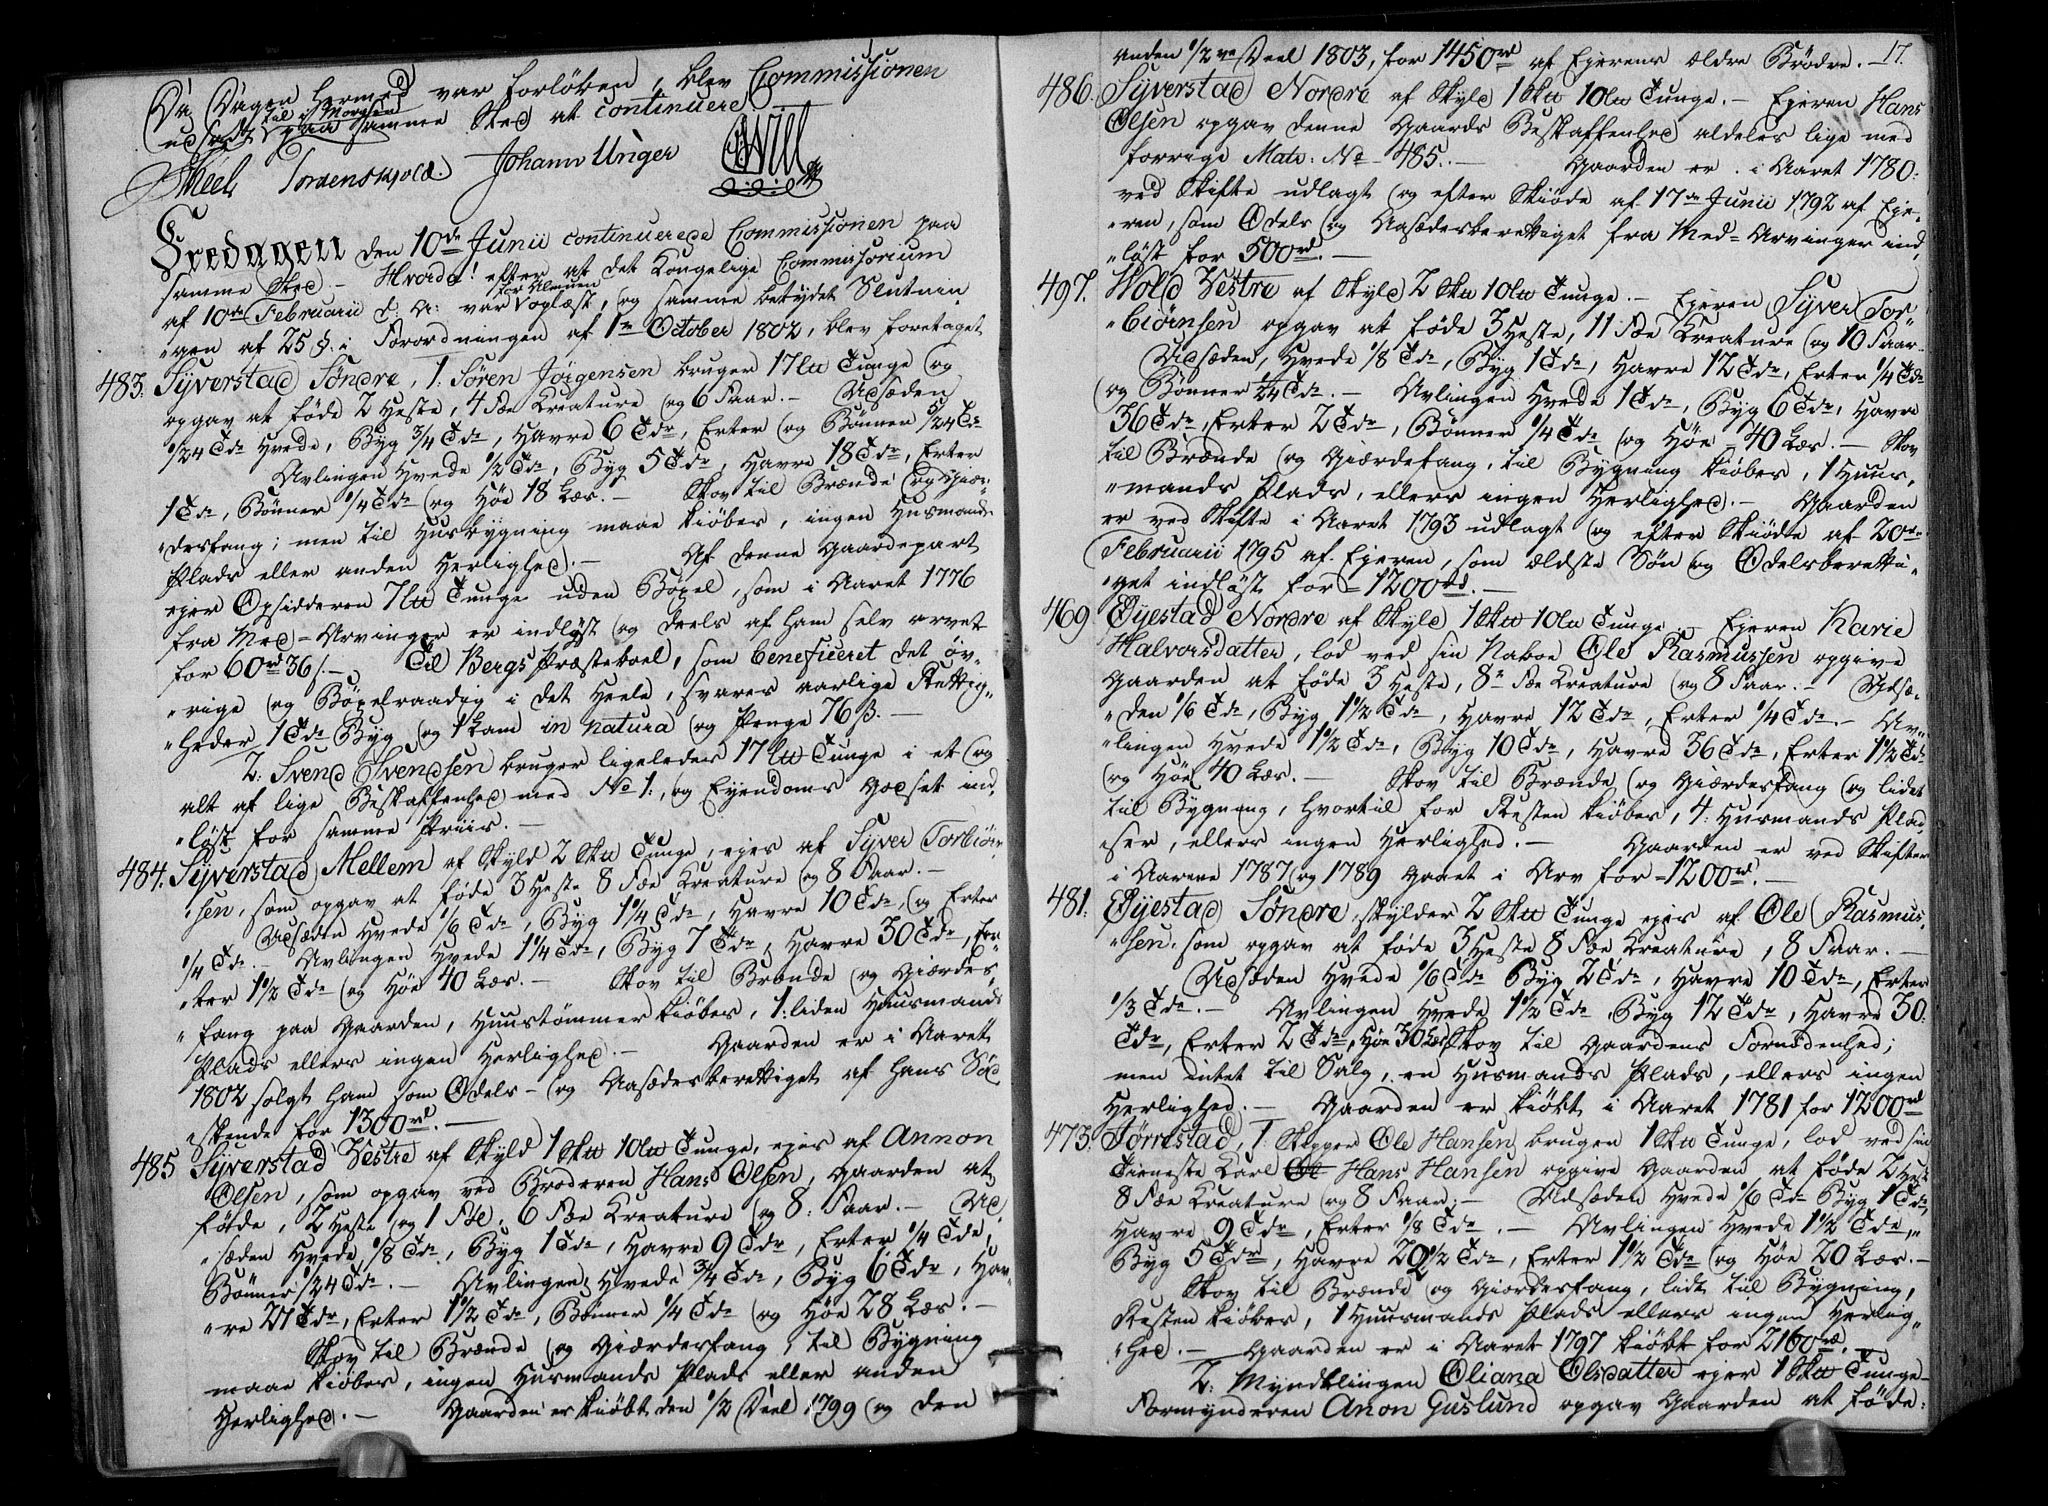 Da Dagen hermed var forløben, blev Commissionen
udsadt til i Morgen paa samme Sted at continuere
Skeel Tordenskjold. Johann Unger OWill
Fredagen den 10de Junii continuerede Commissionen paa
samme Sted. - Hvorda! efter at det Kongelige Commissorium
af 10de Februarii d: A: var for Almuen oplæst, og samme betydet Slutnin„
„gen af 25 §. i Forordningen af 1te October 1802, blev foretaget
483. Syverstad Søndre, 1: Søren Jørgensen bruger 17 L℔ Tunge og
opgav at føde 2 Heste, 4 Fæe Kreature og 6 Faar. - Udsæden
1/24 Tde Hvede, Byg 3/4 Tde, Havre 6 Tdr, Erter og Bønner 5/24 Tde
Avlingen Hvede 1/2 Tde, Byg 5 Tdr, Havre 18 Tdr, Erter
1 Tde, Bønner 1/4 Tde og Høe 18 Læs. - Skov til Brænde og Giær„
„desfang; men til Husbygning maae kiøbes, ingen Husmands
Plads eller anden Herlighed. - Af denne Gaardepart
ejer Opsidderen 7 L℔ Tunge uden Bøxel, som i Aaret 1776
fra Med-Arvinger er indløst og deels af ham selv arvet
for 60 rd 36 s. - Til Bergs Præsteboel, som beneficeret det øv„
„rige og Bøxelraadig i det Heele, svares aarlige Rettig„
„heder 1 Tde Byg og 1 Lam in natura og Penge 76 ß. -
2: Svend Svendsen bruger ligeledes 17 L℔ Tunge i et og
alt af lige Beskaffenhed med No 1:, og Eyendoms Godset ind„
„løst for samme Priis. -
484. Syverstad Mellem af Skyld 2 Sk℔ Tunge, ejes af Syver Torbiør„
„sen, som opgav at føde 3 Heste 8 Fæe Kreature og 8 Faar. -
Udsæden Hvede 1/6 Tde, Byg 1 1/4 Tde, Havre 10 Tde, og Erter
1/4 Tde. - Avlingen Hvede 1 1/4 Tde, Byg 7 Tdr, Havre 30 Tdr, Er„
„ter 1 1/2 Tde og Høe 40 Læs. - Skov til Brænde og Giærdes„
„fang paa Gaarden, Huustømmer kiøbes, 1: liden Huusmands
Plads ellers ingen Herlighed. - Gaarden er i Aaret
1802 solgt ham som Odels- og Aasædesberettiget af hans Sød„
„skende for 1300 rd. -
485 Syverstad Vestre af Skyld 1 Sk℔ 10 L℔ Tunge, ejes af Annon
Olsen, som opgav ved Broderen Hans Olsen, Gaarden at
føde, 2 Heste og 1 Føl, 6 Fæe Kreature og 8: Faar. - Ud„
„sæden Hvede 1/8 Tde, Byg 1 Tde, Havre 9 Tdr, Erter 1/4 Tde,
Bønner 1/24 Tde. - Avlingen, Hvede 3/4 Tde, Byg 6 Tdr, Hav„
„re 27 Tdr, Erter 1 1/2 Tde, Bønner 1/4 Tde og Høe 28 Læs. -
Skov til Brænde og Giærdesfang, til Bygning
maae kiøbes, ingen Husmands Plads eller anden
Herlighed. - Gaarden er kiøbt den 1/2 Deel 1799 og den
anden 1/2 ve Deel 1803, for 1450 rd af Ejerens ældre Brødre. - 17.
486. Syverstad Nordre af Skyld 1 Sk℔ 10 L℔ Tunge. - Ejeren Hans
Olsen opgav denne Gaards Beskaffenhed aldeles lige med
forrige Matr: No 485. - Gaarden er i Aaret 1780.
ved Skifte udlagt og efter Skiøde af 17de Junii 1792 af Eje„
„ren, som Odels og Aasædesberettiget fra Med-Arvinger ind„
„løst for 500 rd. -
497. Wold Vestre af Skyld 2 Sk℔ 10 L℔ Tunge. - Ejeren Syver Tor„
„biørnsen opgav at føde 3 Heste, 11 Fæe Kreature og 10 Faar.
Udsæden, Hvede 1/8 Tde, Byg 1 Tde, Havre 12 Tdr, Erter 1/4 Tde
og Bønner 1/24 Tde. - Avlingen Hvede 1 Tde, Byg 6 Tdr, Havre
36 Tdr, Erter 2 Tdr, Bønner 1/4 Tde og Høe - 40 Læs. - Skov
til Brænde og Giærdefang, til Bygning kiøbes, 1 Huus„
„mands Plads, ellers ingen Herlighed. - Gaarden
er ved Skifte i Aaret 1793 udlagt og efter Skiøde af 20de
Februarii 1795 af Ejeren, som ældste Søn og Odelsberetti„
„get indløst for - 1200 rd. -
469 Øyestad Nordre af Skyld 1 Sk℔ 10 L℔ Tunge. - Ejeren Karie
Halvorsdatter, lod ved sin Naboe Ole Rasmussen opgive
Gaarden at føde 3 Heste, 8te Fæe Kreature og 8 Faar. - Udsæ„
„den 1/6 Tde, Byg 1 1/2 Tde, Havre 12 Tdr, Erter 1/4 Tde. - Av„
„lingen Hvede 1 1/2 Tde, Byg 10 Tdr, Havre 36 Tdr, Erter 1 1/2 Tde
og Høe 40 Læs. - Skov til Brænde og Giærdesfang og lidet
til Bygning, hvortil for Resten kiøbes, 4: Husmands Plad„
„ser, ellers ingen Herlighed. - Gaarden er ved Skifter
i Aarene 1787 og 1789 gaaet i Arv for - 1200 rd. -
481. Øyestad Søndre, skylder 2 Sk℔ Tunge ejes af Ole Rasmus„
„sen, som opgav at føde 3 Heste 8 Fæe Kreature, 8 Faar. -
Udsæden Hvede 1/6 Tde Byg 2 Tdr, Havre 10 Tdr, Erter
1/3 Tde. - Avlingen Hvede 1 1/2 Tde, Byg 12 Tdr, Havre 30
Tdr, Erter 2 Tdr, Høe 30 Læs. Skov til Gaardens Fornødenhed;
men intet til Salg, en Husmands Plads, ellers ingen
Herlighed. - Gaarden er kiøbt i Aaret 1781 for 1200 rd
473. Tørrestad, 1: Skipper Ole Hansen, bruger 1 Sk℔ Tunge, lod ved sin
Tieneste Karl Ol Hans Hansen opgive Gaarden at føde 2 Heste
8 Fæe Kreature og 8 Faar. - Udsæden Hvede 1/6 Tde Byg 1 Tde,
Havre 9 Tdr, Erter 1/8 Tde. - Avlingen Hvede 1 1/2 Tde,
Byg 5 Tdr, Havre 22 1/2 Tde, Erter 1 1/2 Tde og Høe 20 Læs. -
Skov til Brænde og Giordesfang, lidt til Bygning,
Resten kiøbes, 1 Huusmands Plads ellers ingen Herlig„
„hed. - Gaarden er i Aaret 1797 kiøbt for 2160 rd. -
2: Myndtlingen Oliana Olsdatter ejer 1 Sk℔ Tunge -
Formynderen Anon Guslund opgav Gaarden at føde: